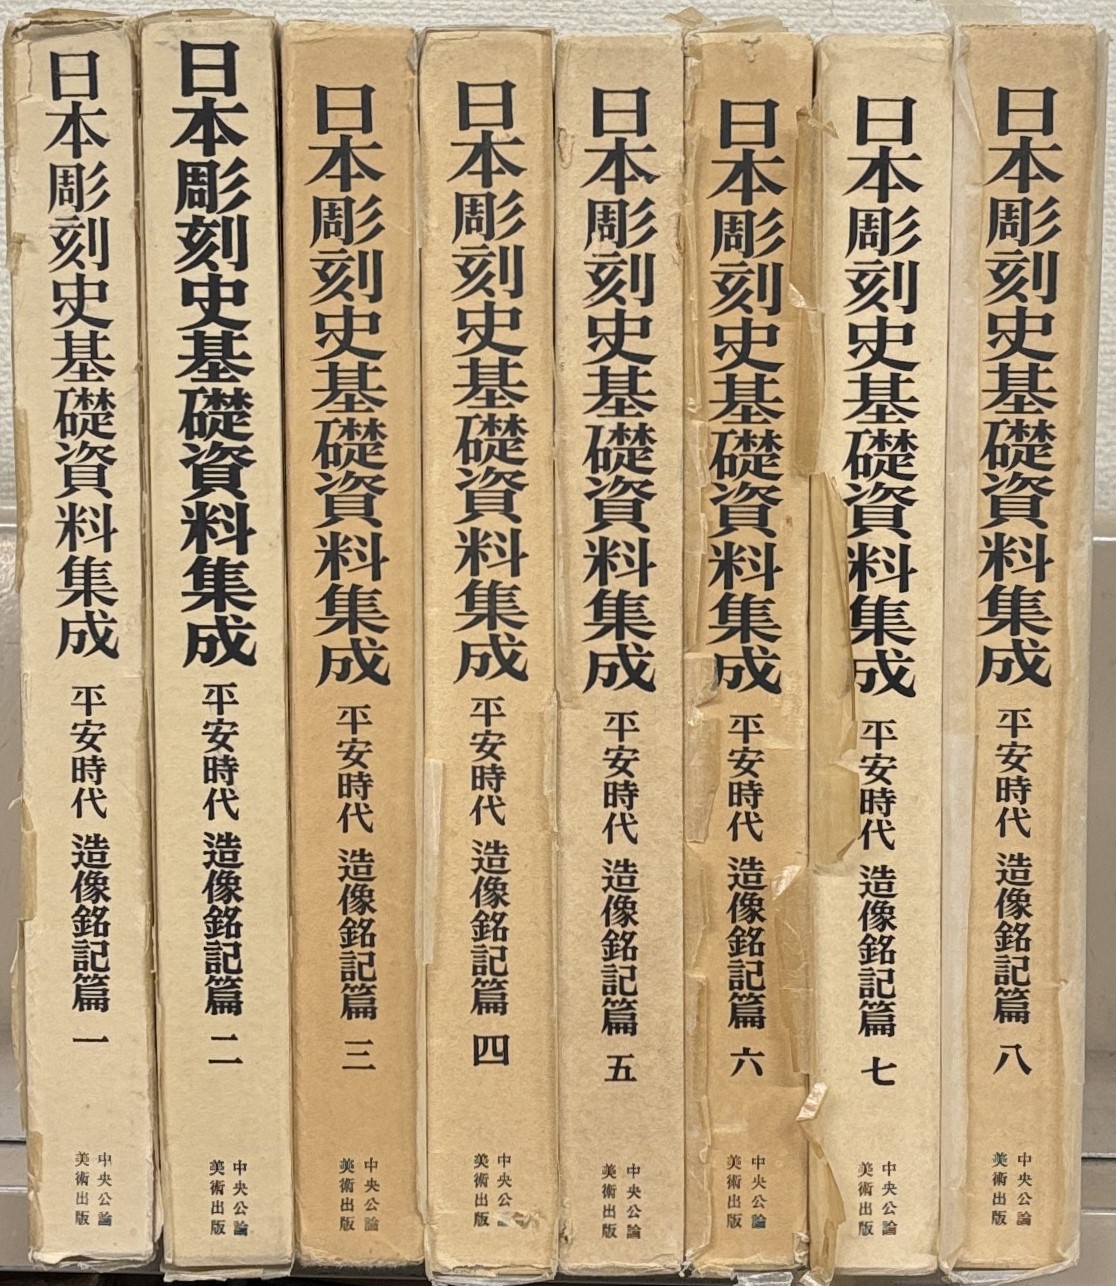 日本彫刻史基礎資料集成 平安時代 造像銘記篇 一
中央公論
美術出版
日本彫刻史基礎資料集成 平安時代 造像銘記篇 二
中央公論
美術出版
日本彫刻史基礎資料集成 平安時代 造像銘記篇 三
中央公論
美術出版
日本彫刻史基礎資料集成 平安時代 造像銘記篇 四
中央公論
美術出版
日本彫刻史基礎資料集成 平安時代 造像銘記篇 五
中央公論
美術出版
日本彫刻史基礎資料集成 平安時代 造像銘記篇 六
中央公論
美術出版
日本彫刻史基礎資料集成 平安時代 造像銘記篇 七
中央公論
美術出版
日本彫刻史基礎資料集成 平安時代 造像銘記篇 八
中央公論
美術出版